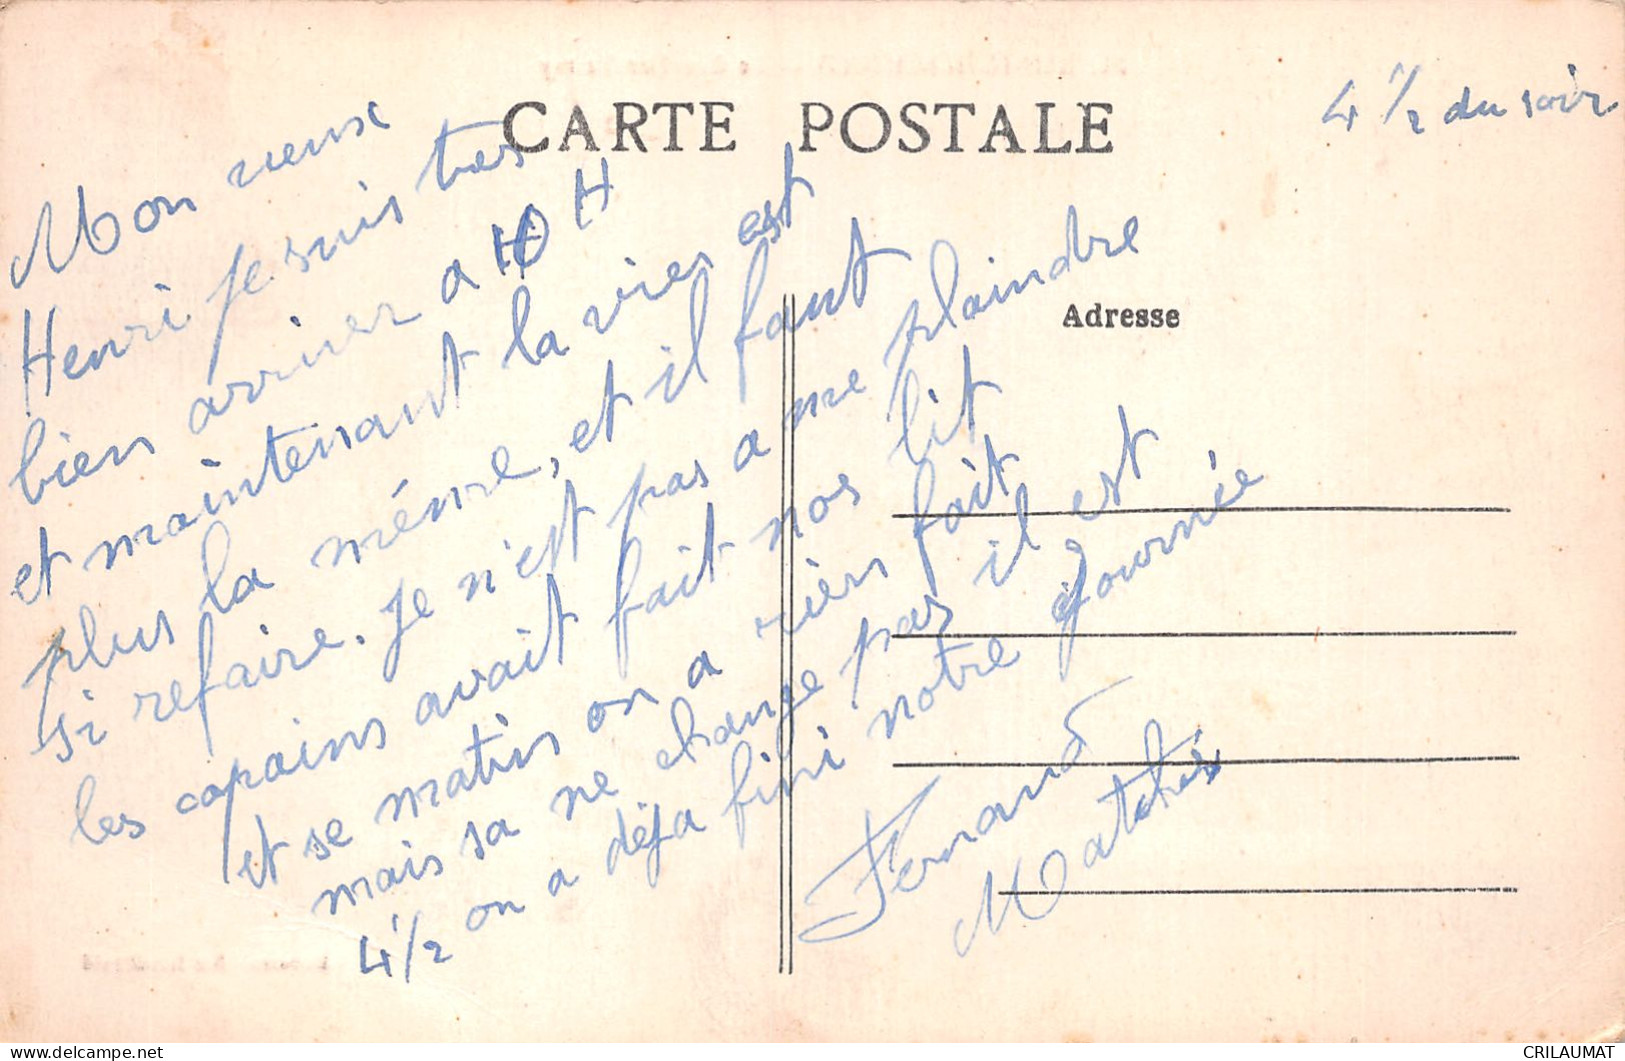 CARTE POSTALE
4 1/2 du soir
Mon vieux
Henri je suis tres
bien arriver a 10 H
et maintenant la vies est
plus la même, et il faut
si refaire. Je n'est pas a me plaindre
les copains avait fait nos lit
et se matin on a rien fait
mais sa ne change pas il est
4 1/2 on a déja fini notre journée
Fernand
Adresse
CRILAUMAT